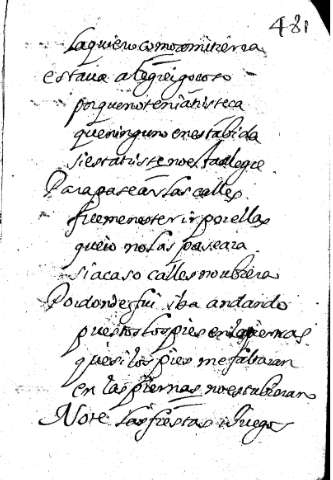 481
la quiero como comi tierra
estaua alegre i gocoso
porque no tenia tristeca
que ninguno en esta bida
si esta triste no esta alegre
Para pasear las calles
fue menester ir por ellas
que io no las paseara
si acaso calles no ubiera
Por donde fui iba andando
puestos los pies en las piernas
que si los pies me faltaran
en las piernas no estubieran
Note las fiestas i juegos